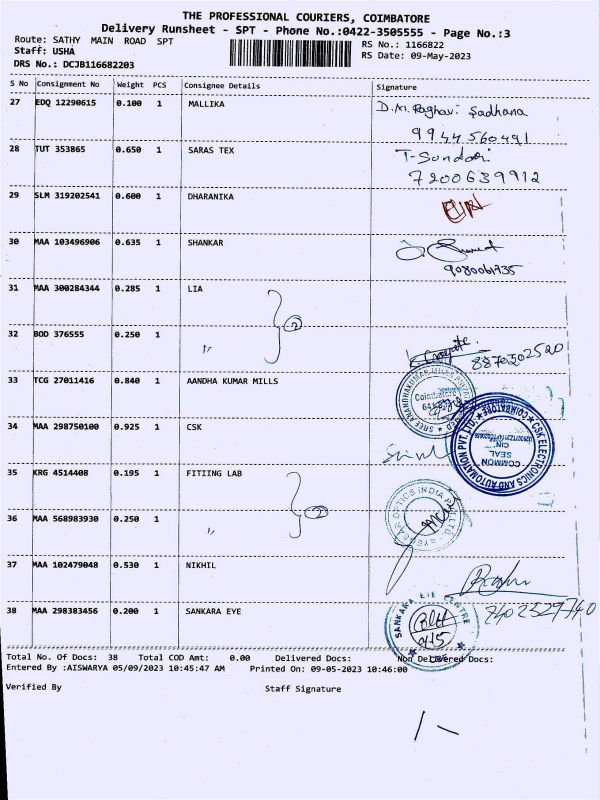 THE PROFESSIONAL COURIERS, COIMBATORE
Delivery Runsheet - SPT - Phone No.:0422-3505555 - Page No.:3
Route: SATHY MAIN ROAD SPT
RS No.: 1166822
Staff: USHA
RS Date: 09-May-2023
DRS No.: DCJB116682203
S No Consignment No Weight PCS Consignee Details Signature
27 EDQ 12290615 0.100 1 MALLIKA D.M. Raghavi Sadhana
9944560491
28 TUT 353865 0.650 1 SARAS TEX T-Sundari
7200639912
29 SLM 319202541 0.600 1 DHARANIKA
30 MAA 103496906 0.635 1 SHANKAR
9080061735
31 MAA 300284344 0.285 1 LIA
2
32 BOD 376555 0.250 1 "
8870202520
33 TCG 27011416 0.840 1 AANDHA KUMAR MILLS
Coimbatore
34 MAA 298750100 0.925 1 CSK
CSK ELECTRONICS AND AUTOMATION PVT. LTD. ★ COIMBATORE ★
COMMON
SEAL
35 KRG 4514408 0.195 1 FITIING LAB
2
36 MAA 568983930 0.250 1 "
37 MAA 102479048 0.530 1 NIKHIL
38 MAA 298383456 0.200 1 SANKARA EYE
SANKARA EYE CENTRE
9/5
Total No. Of Docs: 38 Total COD Amt: 0.00 Delivered Docs: Non Delivered Docs:
Entered By :AISWARYA 05/09/2023 10:45:47 AM Printed On: 09-05-2023 10:46:00
Verified By Staff Signature